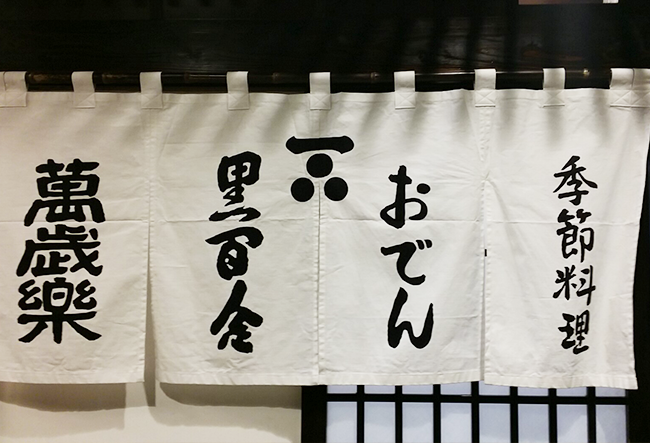 季節料理
おでん
黒百合
萬歳楽